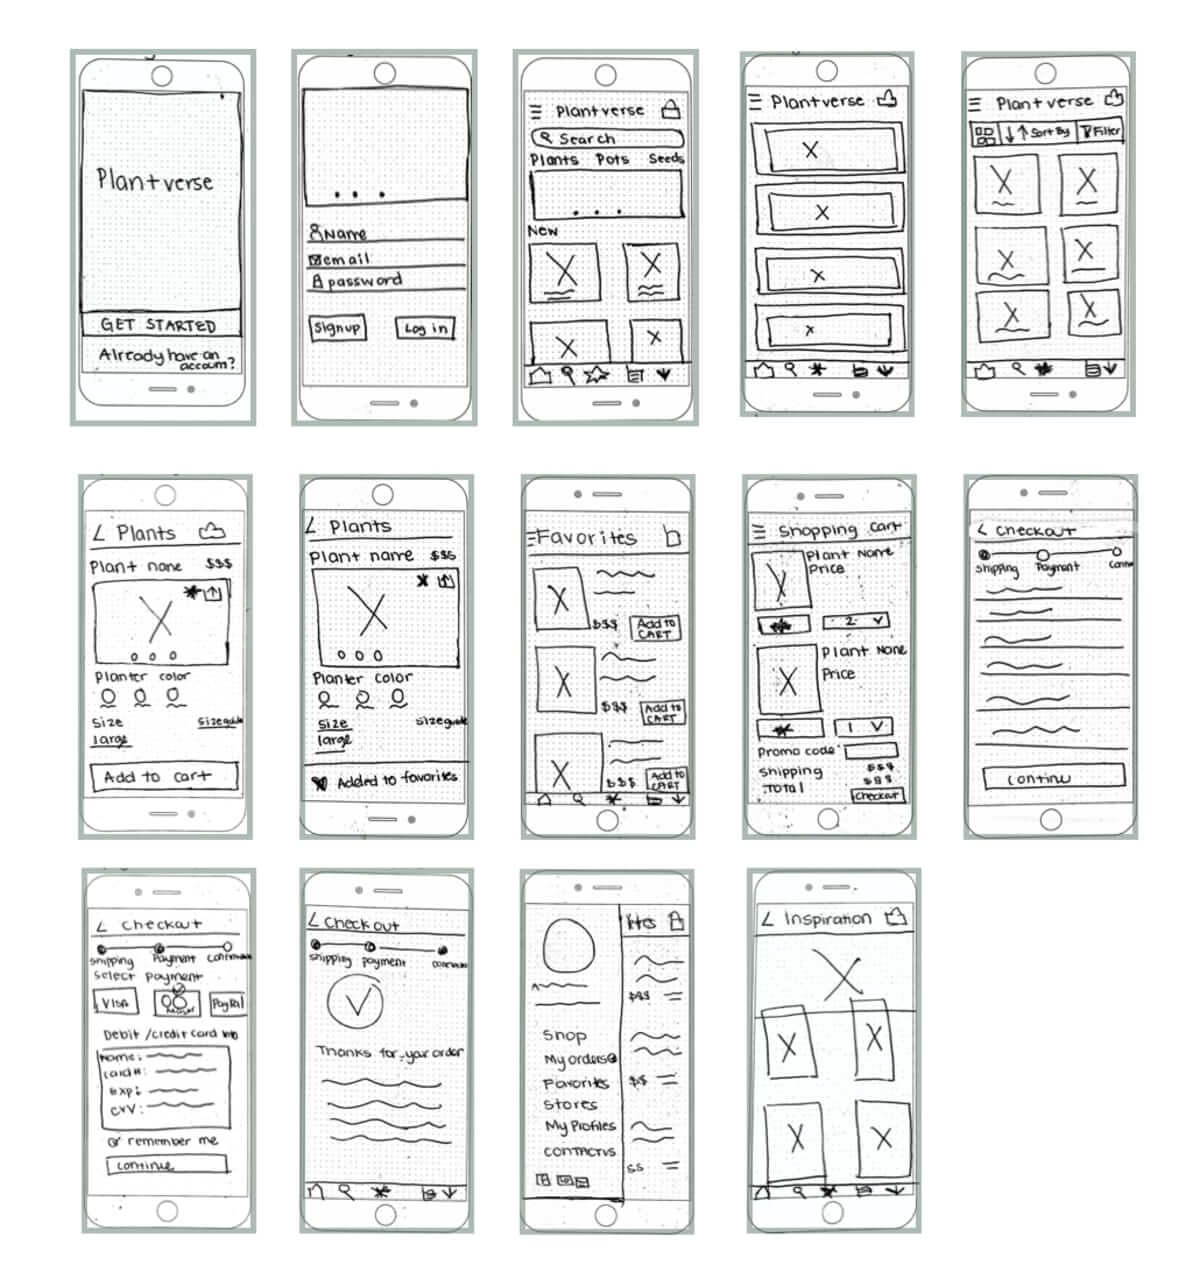 Plantverse
GET STARTED
Already have an
account?
Name
email
password
Signup
Log in
Plantverse
Search
Plants Pots Seeds
New
Plantverse
Plantverse
Sort By
Filter
Plants
Plant name $$$
Planter color
Size
Sizeguide
large
Add to cart
Plants
Plant name $$$
Planter color
Size
sizeguide
large
Added to favorites
Favorites
$$$
Add to
CART
$$$
Add to
CART
$$$
Add to
CART
Shopping Cart
Plant Name
Price
2
Plant Name
Price
1
Promo code
Shipping $$$
Total $$$
Checkout
Checkout
Shipping Payment
Continu
Checkout
Shipping Payment
Select payment
VISA
PayPal
Debit /credit card info
Name:
card#:
Exp:
CVV:
remember me
continue
Checkout
Shipping payment
Thanks for your order
ites
$$$
Shop
My orders
Favorites
$$
Stores
My Profiles
contactus
$$
Inspiration